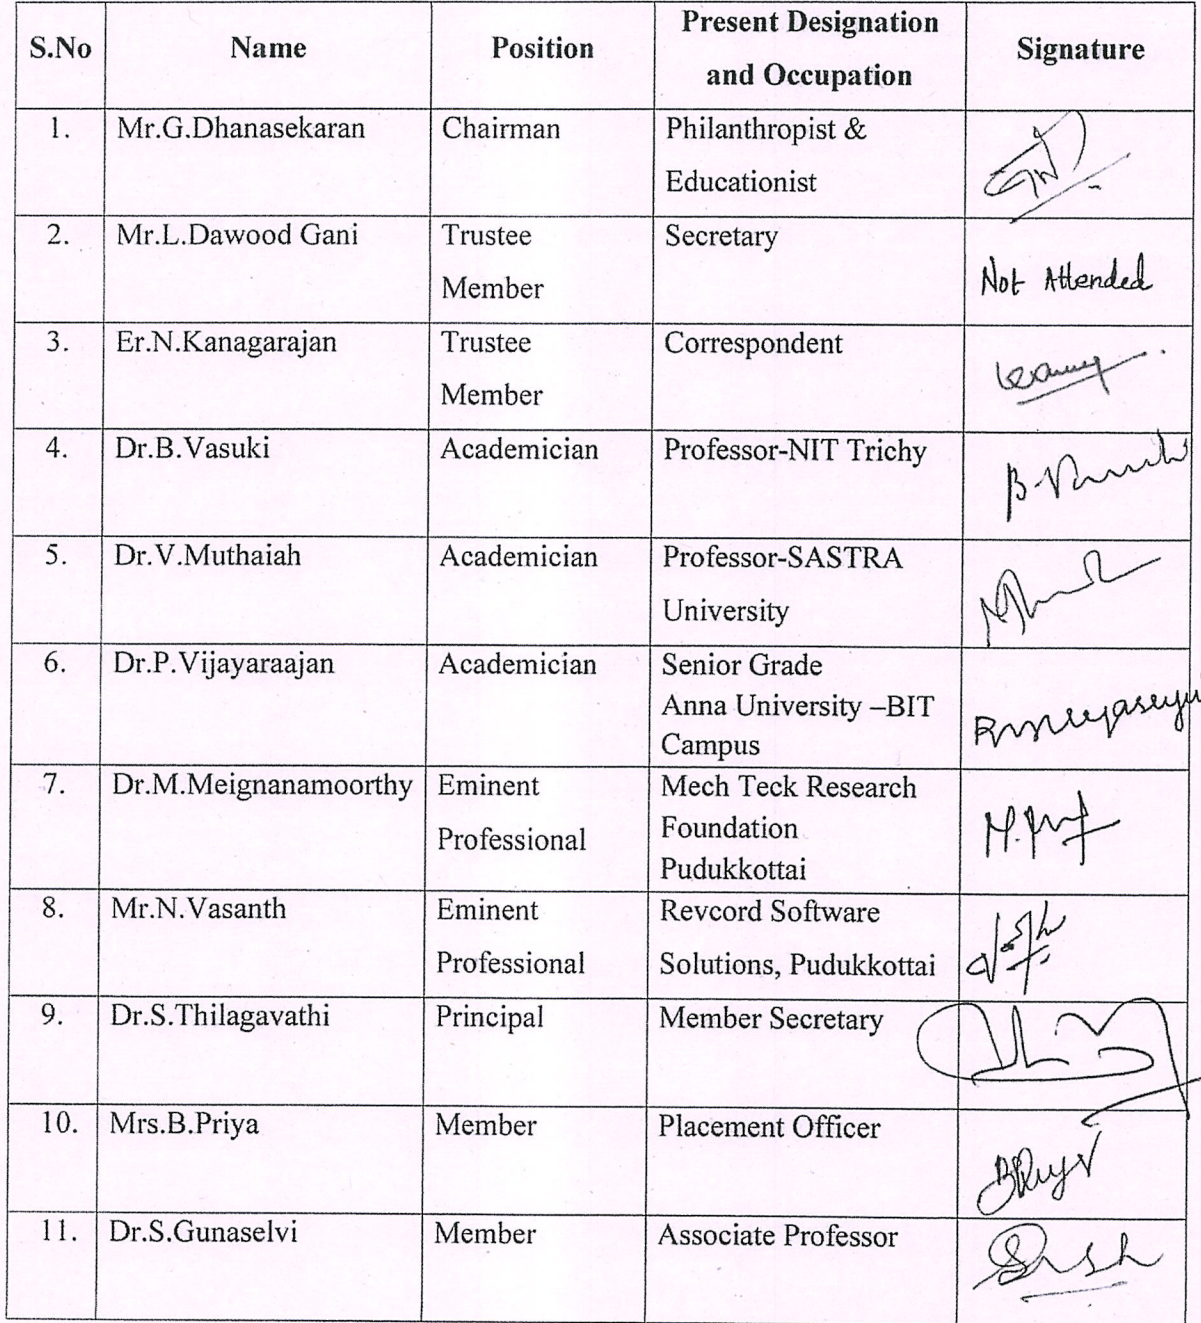 S.No Name Position Present Designation and Occupation Signature
1. Mr.G.Dhanasekaran Chairman Philanthropist &
Educationist
2. Mr.L.Dawood Gani Trustee Secretary
Member Not Attended
3. Er.N.Kanagarajan Trustee Correspondent
Member
4. Dr.B.Vasuki Academician Professor-NIT Trichy
5. Dr.V.Muthaiah Academician Professor-SASTRA
University
6. Dr.P.Vijayaraajan Academician Senior Grade
Anna University –BIT
Campus
7. Dr.M.Meignanamoorthy Eminent Mech Teck Research
Professional Foundation
Pudukkottai
8. Mr.N.Vasanth Eminent Revcord Software
Professional Solutions, Pudukkottai
9. Dr.S.Thilagavathi Principal Member Secretary
10. Mrs.B.Priya Member Placement Officer
11. Dr.S.Gunaselvi Member Associate Professor